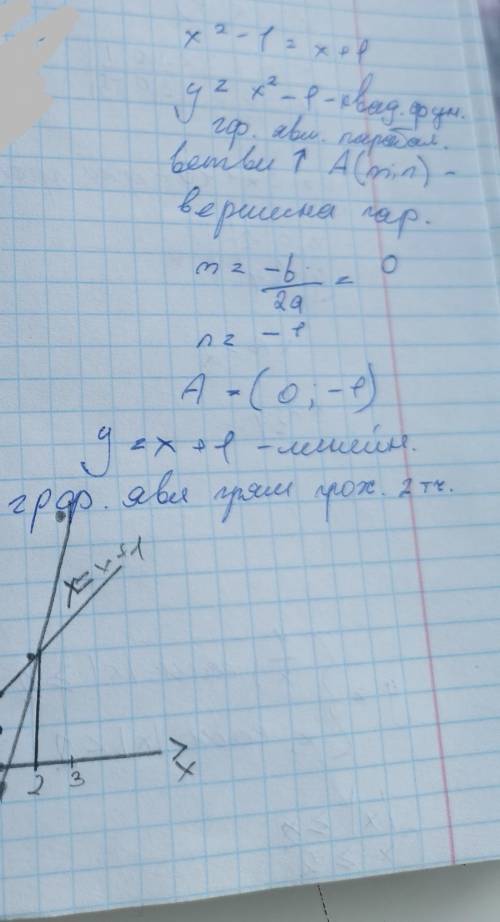 x² - 1 = x + 1
y = x² - 1 - квад. фун.
гр. явл. парабол.
ветви ↑ A(m; n) -
вершина пар.
m = -b/2a = 0
n = -1
A = (0; -1)
y = x + 1 - линейн.
граф. явл прям прох. 2 тч.
x = x + 1
2 3 x